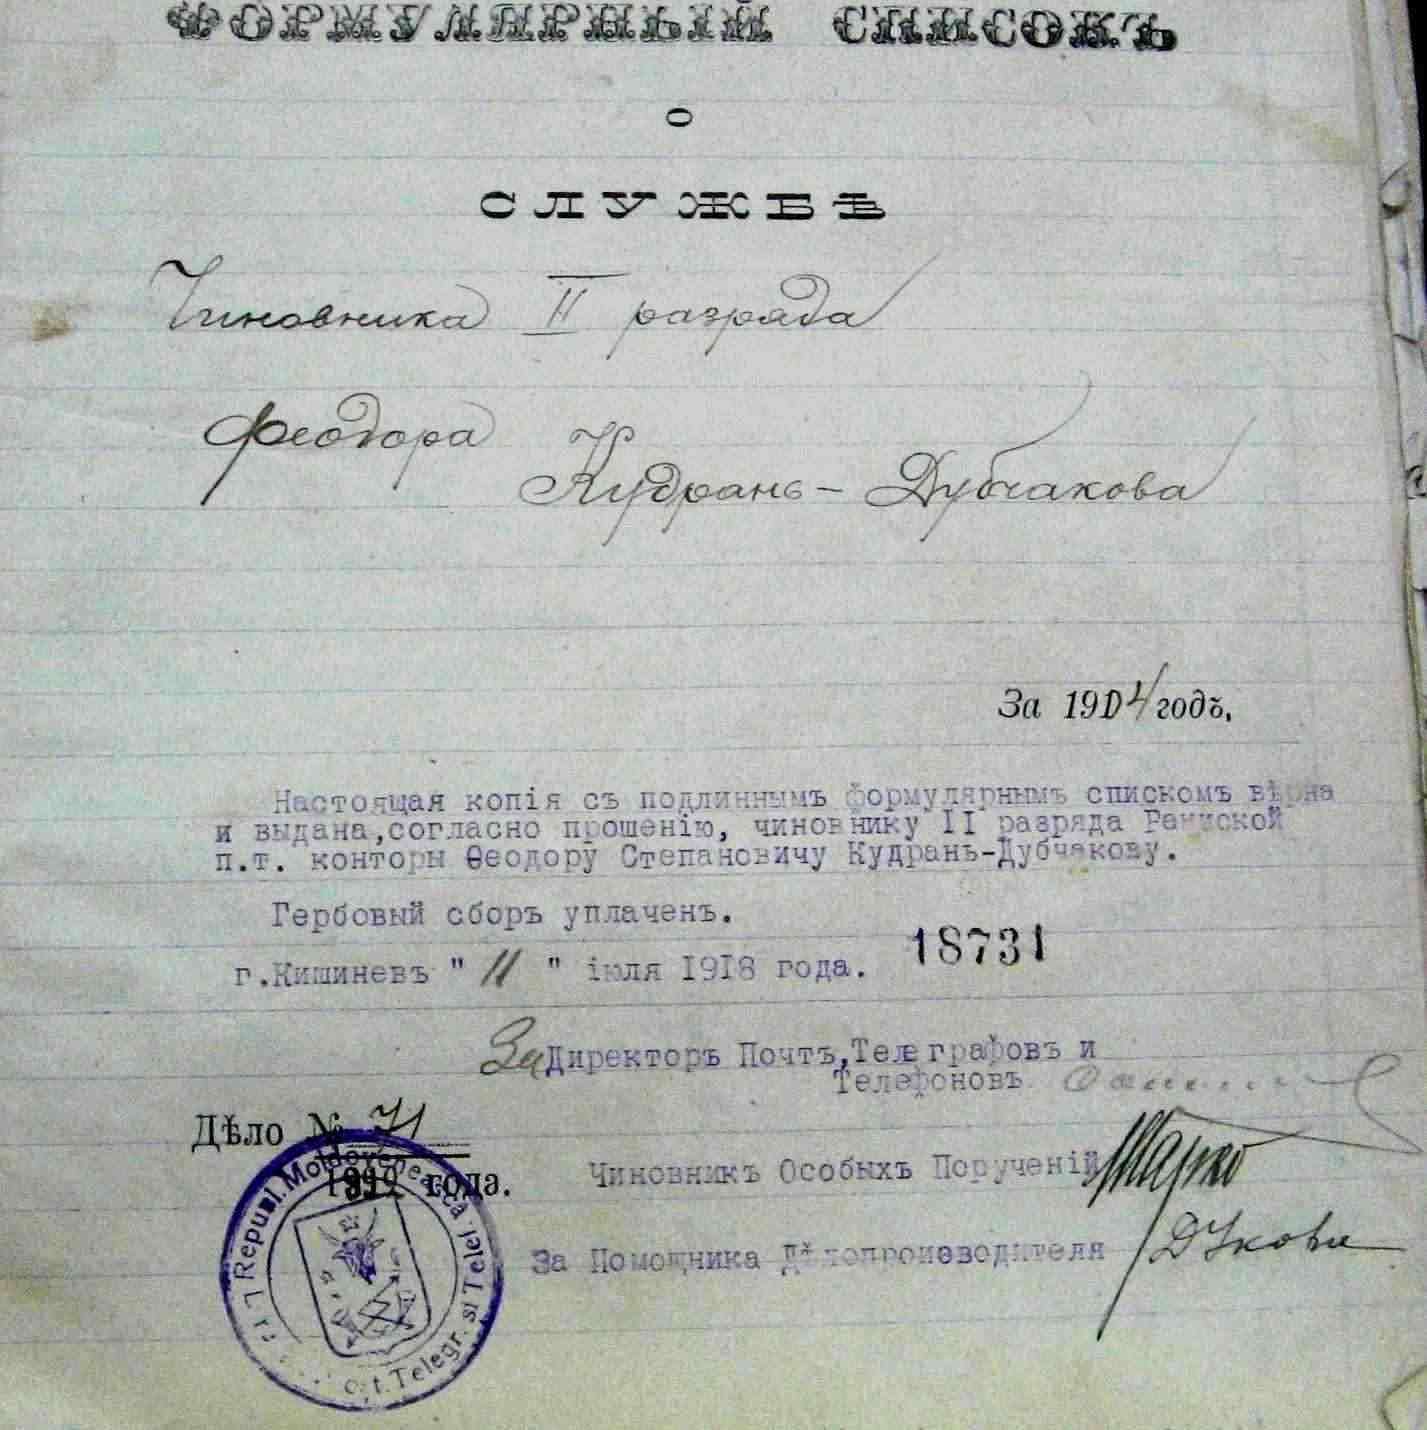 ФОРМУЛЯРНЫЙ СПИСОКЪ
О
СЛУЖБѢ
Чиновника II разряда
Феодора
Кудрань-Дубчакова
За 1904 годъ.
Настоящая копія съ подлиннымъ формулярнымъ спискомъ вѣрна
и выдана, согласно прошенію, чиновнику II разряда Ренійской
п.т. конторы Ѳеодору Степановичу Кудрань-Дубчакову.
Гербовый сборъ уплаченъ.
18731
г.Кишиневъ " 11 " іюля 1918 года.
За Директоръ Почтъ,Телеграфовъ и
Телефоновъ
Дѣло № 71
года.
Чиновникъ Особыхъ Порученій
За Помощника Дѣлопроизводителя
Republ. Moldovenească
Telegr. si Telef